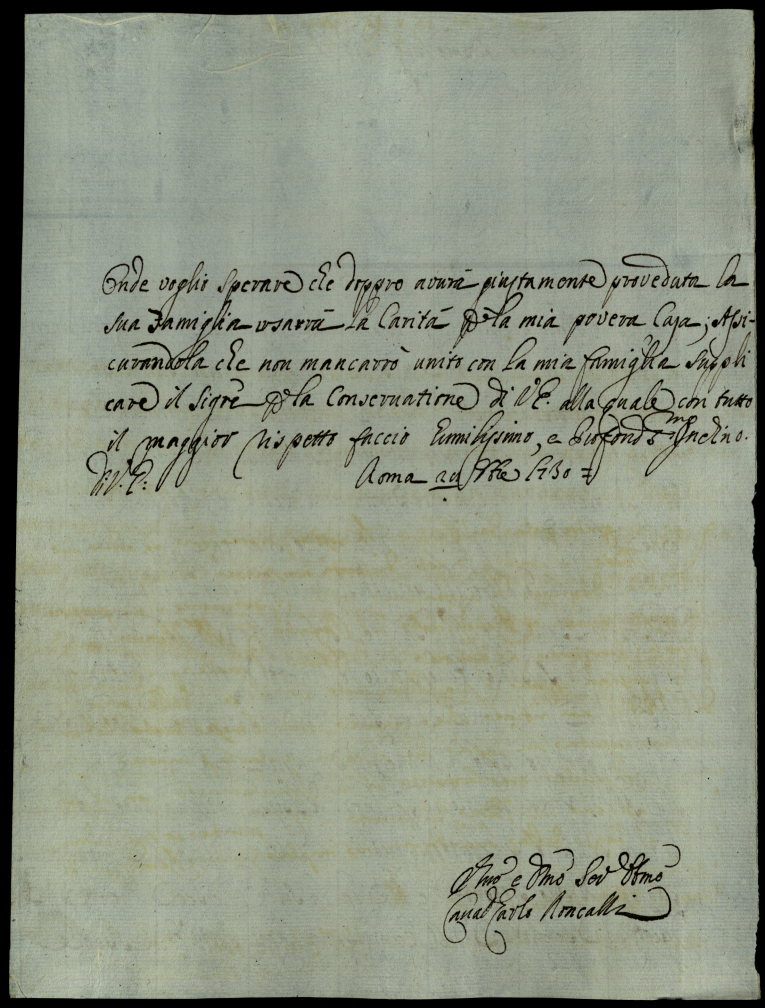 Onde voglio sperare che doppo avurà giustamente proveduta la
sua Famiglia usarrà la Carità p la mia povera Casa; Assi-
curandola che non mancarrò unito con la mia famiglia suppli
care il Sigre p la Conservatione di V.E. alla quale con tutto
il maggior rispetto faccio humilissimo, e profondmo Inchino.
di V.E: Roma 1730
Servre Obbmo
Cavalr Carlo Roncalli